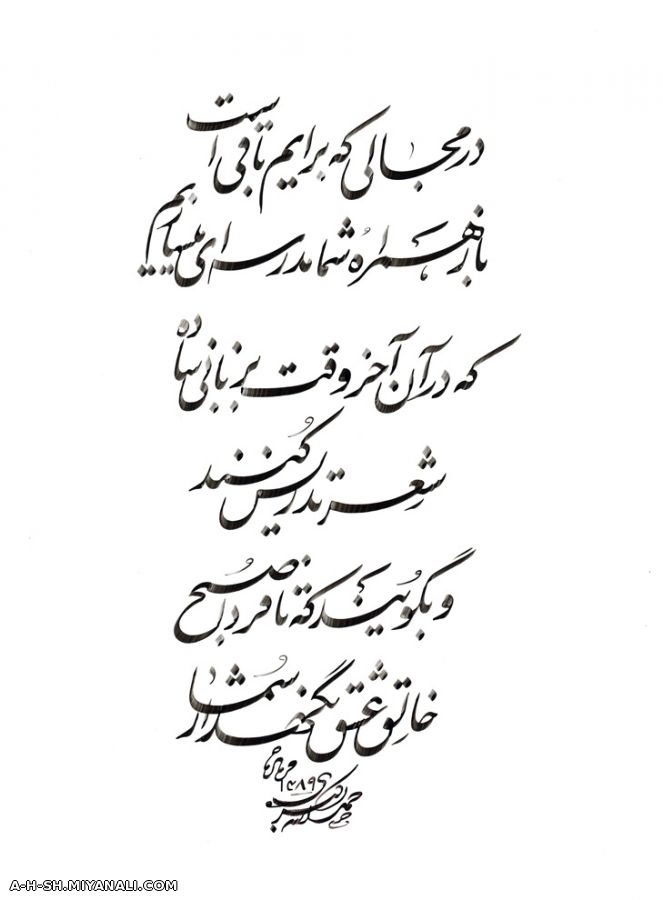 در مجالی که برایم باقی است
باز همراه شما مدرسه ای میسازیم
که در آن آخر وقت به زبانی ساده
شعر تدریس کنند
و بگویند که تا فردا صبح
خالق عشق نگهدار شما
۱۳۸۹
A-H-SH.MIYANALI.COM